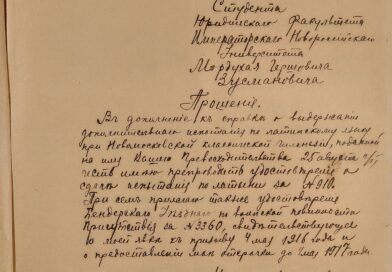 Студента
Юридическаго Факультета
Императорскаго Новороссійскаго
Университета
Мордуха Гершовича
Зусмановича
Прошеніе.
Въ дополненіе къ справкѣ о выдержаніи
дополнительнаго испытанія по латинскому языку
при Новомосковской классической гимназіи, поданной
на имя Вашего Превосходительства 25 августа с/г
честь имѣю препроводить удостовѣреніе о
сдачѣ испытанія по латыни за № 910.
При семъ прилагаю также удостовѣреніе
Бендерскаго Уѣзднаго по воинской повинности
Присутствія за № 3360, свидѣтельствующее
о моей явкѣ къ призыву 4 мая 1916 года и
о предоставленіи мнѣ отсрочки до 1917 года.